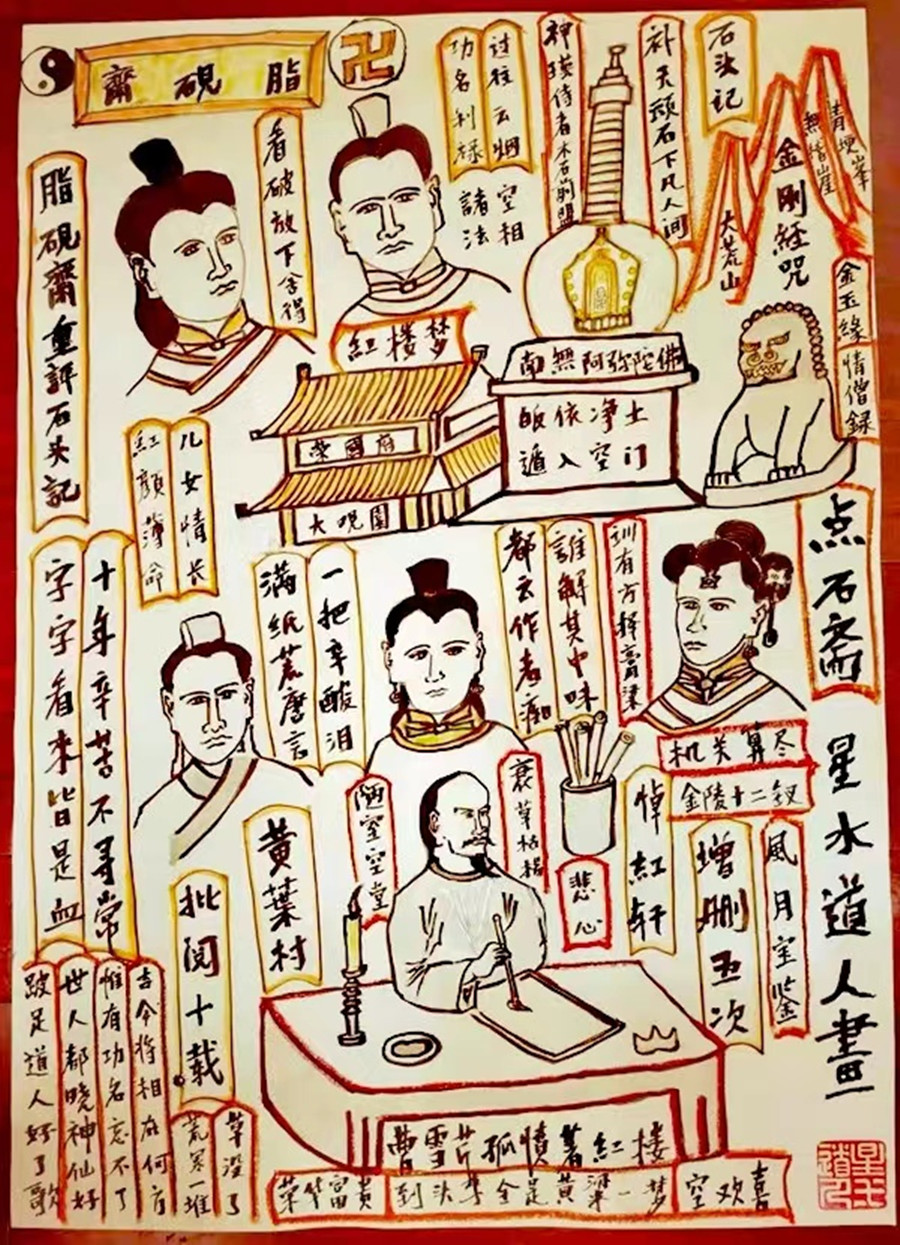 脂硯齋
卍
石头记
补天顽石下凡人间
神瑛侍者木石前盟
过往云烟
功名利禄
諸法
空相
青埂峯
無稽崖
大荒山
金刚经咒
金玉緣
情僧録
看破放下舍得
脂硯齋重評石头記
红楼梦
榮國府
大观園
南無阿弥陀佛
皈依净土
遁入空门
儿女情长
红颜薄命
点石斋
星水道人畫
训有方择膏粱
誰解其中味
都云作者痴
一把辛酸泪
满纸荒唐言
十年辛苦不寻常
字字看来皆是血
机关算尽
金陵十二钗
風月宝鉴
增删五次
悼红轩
悲心
衰草枯杨
陋室空堂
黄葉村
批阅十载
跛足道人好了歌
世人都晓神仙好
惟有功名忘不了
古今将相在何方
荒冢一堆
草没了
曹雪芹孤愤著红楼
荣华富贵
到头来全是黄粱一梦
空欢喜